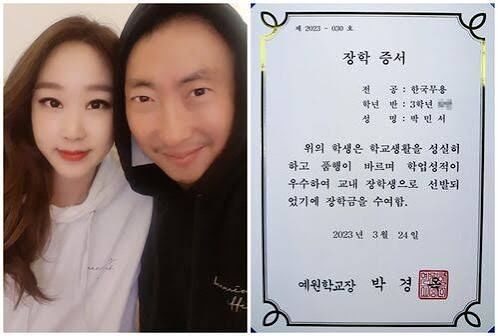 제 2023 - 030 호
장학 증서
전 공 : 한국무용
학년 반 : 3학년
성 명 : 박민서
위의 학생은 학교생활을 성실히
하고 품행이 바르며 학업성적이
우수하여 교내 장학생으로 선발되
었기에 장학금을 수여함.
2023 년 3 월 24 일
예원학교장 박 경